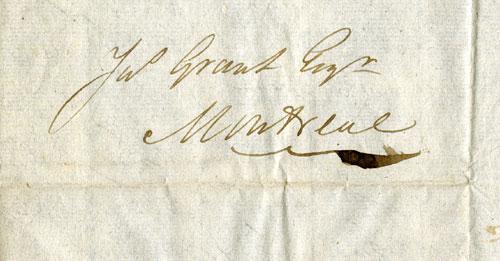 Jas Grant Esqr
Montreal